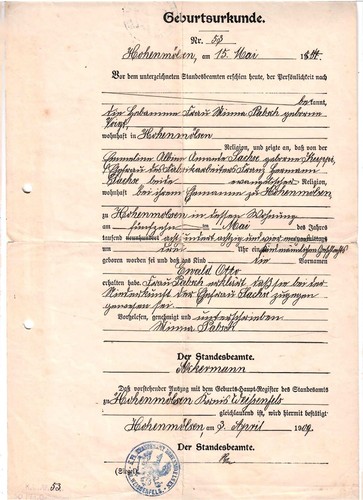 Geburtsurkunde.
Nr. 53
Hohenmölsen, am 15. Mai 1894.
Vor dem unterzeichneten Standesbeamten erschien heute, der Persönlichkeit nach
bekannt,
die Hebamme Frau Minna Pabsch geborene
Voigt,
wohnhaft in Hohenmölsen
Religion, und zeigte an, daß von der
Ernestine Albine Amanda Sachse geborene
Ehefrau des Fabrikarbeiters Franz Hermann
Sachse beide evangelischer Religion,
wohnhaft bei ihrem Ehemanne zu Hohenmölsen
zu Hohenmölsen in dessen Wohnung
am fünfzehnten Mai des Jahres
tausend acht hundert neunzig und vier
Uhr ein Kind männlichen Geschlechts
geboren worden sei und daß das Kind die Vornamen
Ewald Otto
erhalten habe. Frau Pabsch erklärt, daß sie bei der
Niederkunft der Ehefrau Sachse zugegen
gewesen sei.
Vorgelesen, genehmigt und unterschrieben
Minna Pabsch
Der Standesbeamte.
Ackermann
Daß vorstehender Auszug mit dem Geburts-Haupt-Register des Standesamts
zu Hohenmölsen Kreis Weißenfels
gleichlautend ist, wird hiermit bestätigt
Hohenmölsen, am 3. April 1909.
Der Standesbeamte.
(Siegel)
53.